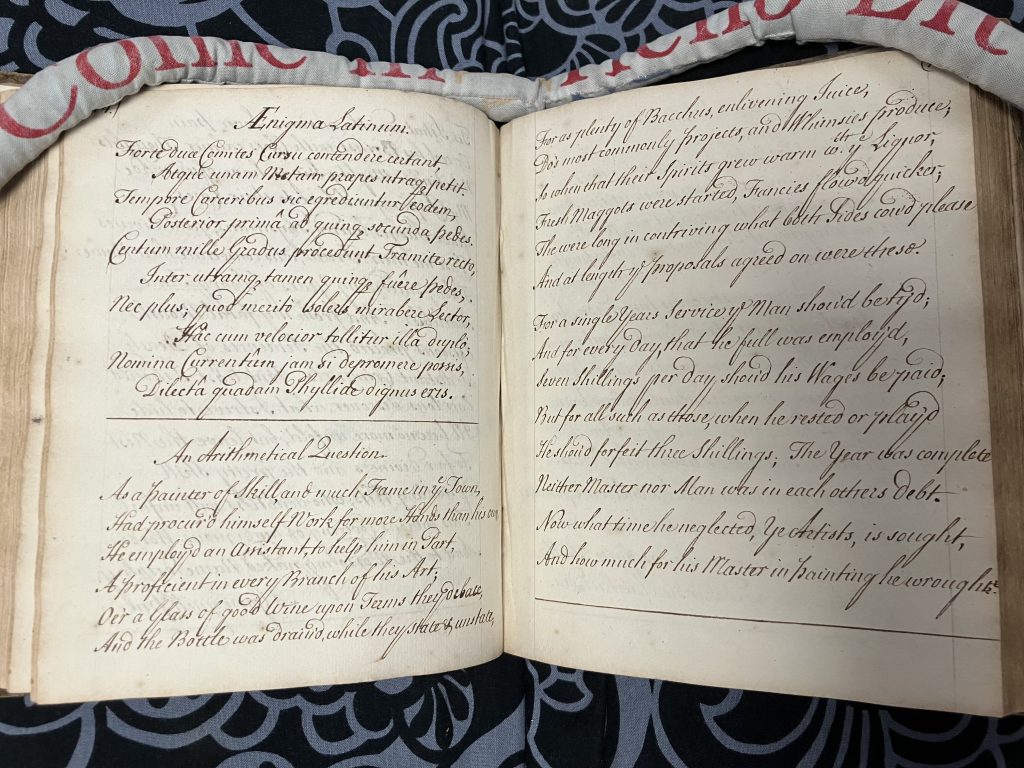 Come in Hens Lit
Ænigma Latinum.
Forte duæ Comites Cursu contendere certant,
Atque unam Metam præpes utraq; petit.
Tempore Carceribus sic egrediuntur eodem,
Posterior primâ ad quinq; secunda pedes.
Centum mille Gradus procedunt Tramite recto,
Inter utramq; tamen quinq; fuêre pedes,
Nec plus; quod merito soleas mirabere Lector,
Hæc cum velocior tollitur illâ duplo;
Nomina Currentûm jam si depromere possis,
Dilectâ quadam Phyllide dignus eris.
An Arithmetical Question.
As a Painter of Skill and much Fame in yͤ Town,
Had procur'd himself Work for more Hands than his own
He employ'd an Assistant, to help him in Part,
A Proficient in every Branch of his Art;
O'er a Glass of good Wine upon Terms they debate,
And the Bottle was drain'd, while they state & unstate,
For as plenty of Bacchus, enlivening Juice,
Do's most commonly Projects, and Whimsies produce;
So when that their Spirits grew warm wͭͪ yͤ Liquor,
Fresh Maggots were started, Fancies flow'd quicker;
The were long in contriving what both Sides cou'd please
And at length yͤ Proposals agreed on were these.
For a single Years Service yͤ Man shou'd be ty'd;
And for every Day, that he full was employ'd,
Seven Shillings per day, shou'd his Wages be paid;
But for all such as those, when he rested or play'd
He shou'd forfeit three Shillings; The Year was complete
Neither Master nor Man was in each others debt.
Now what time he neglected, Ye Artists, is sought,
And how much for his Master in Painting he wrought.